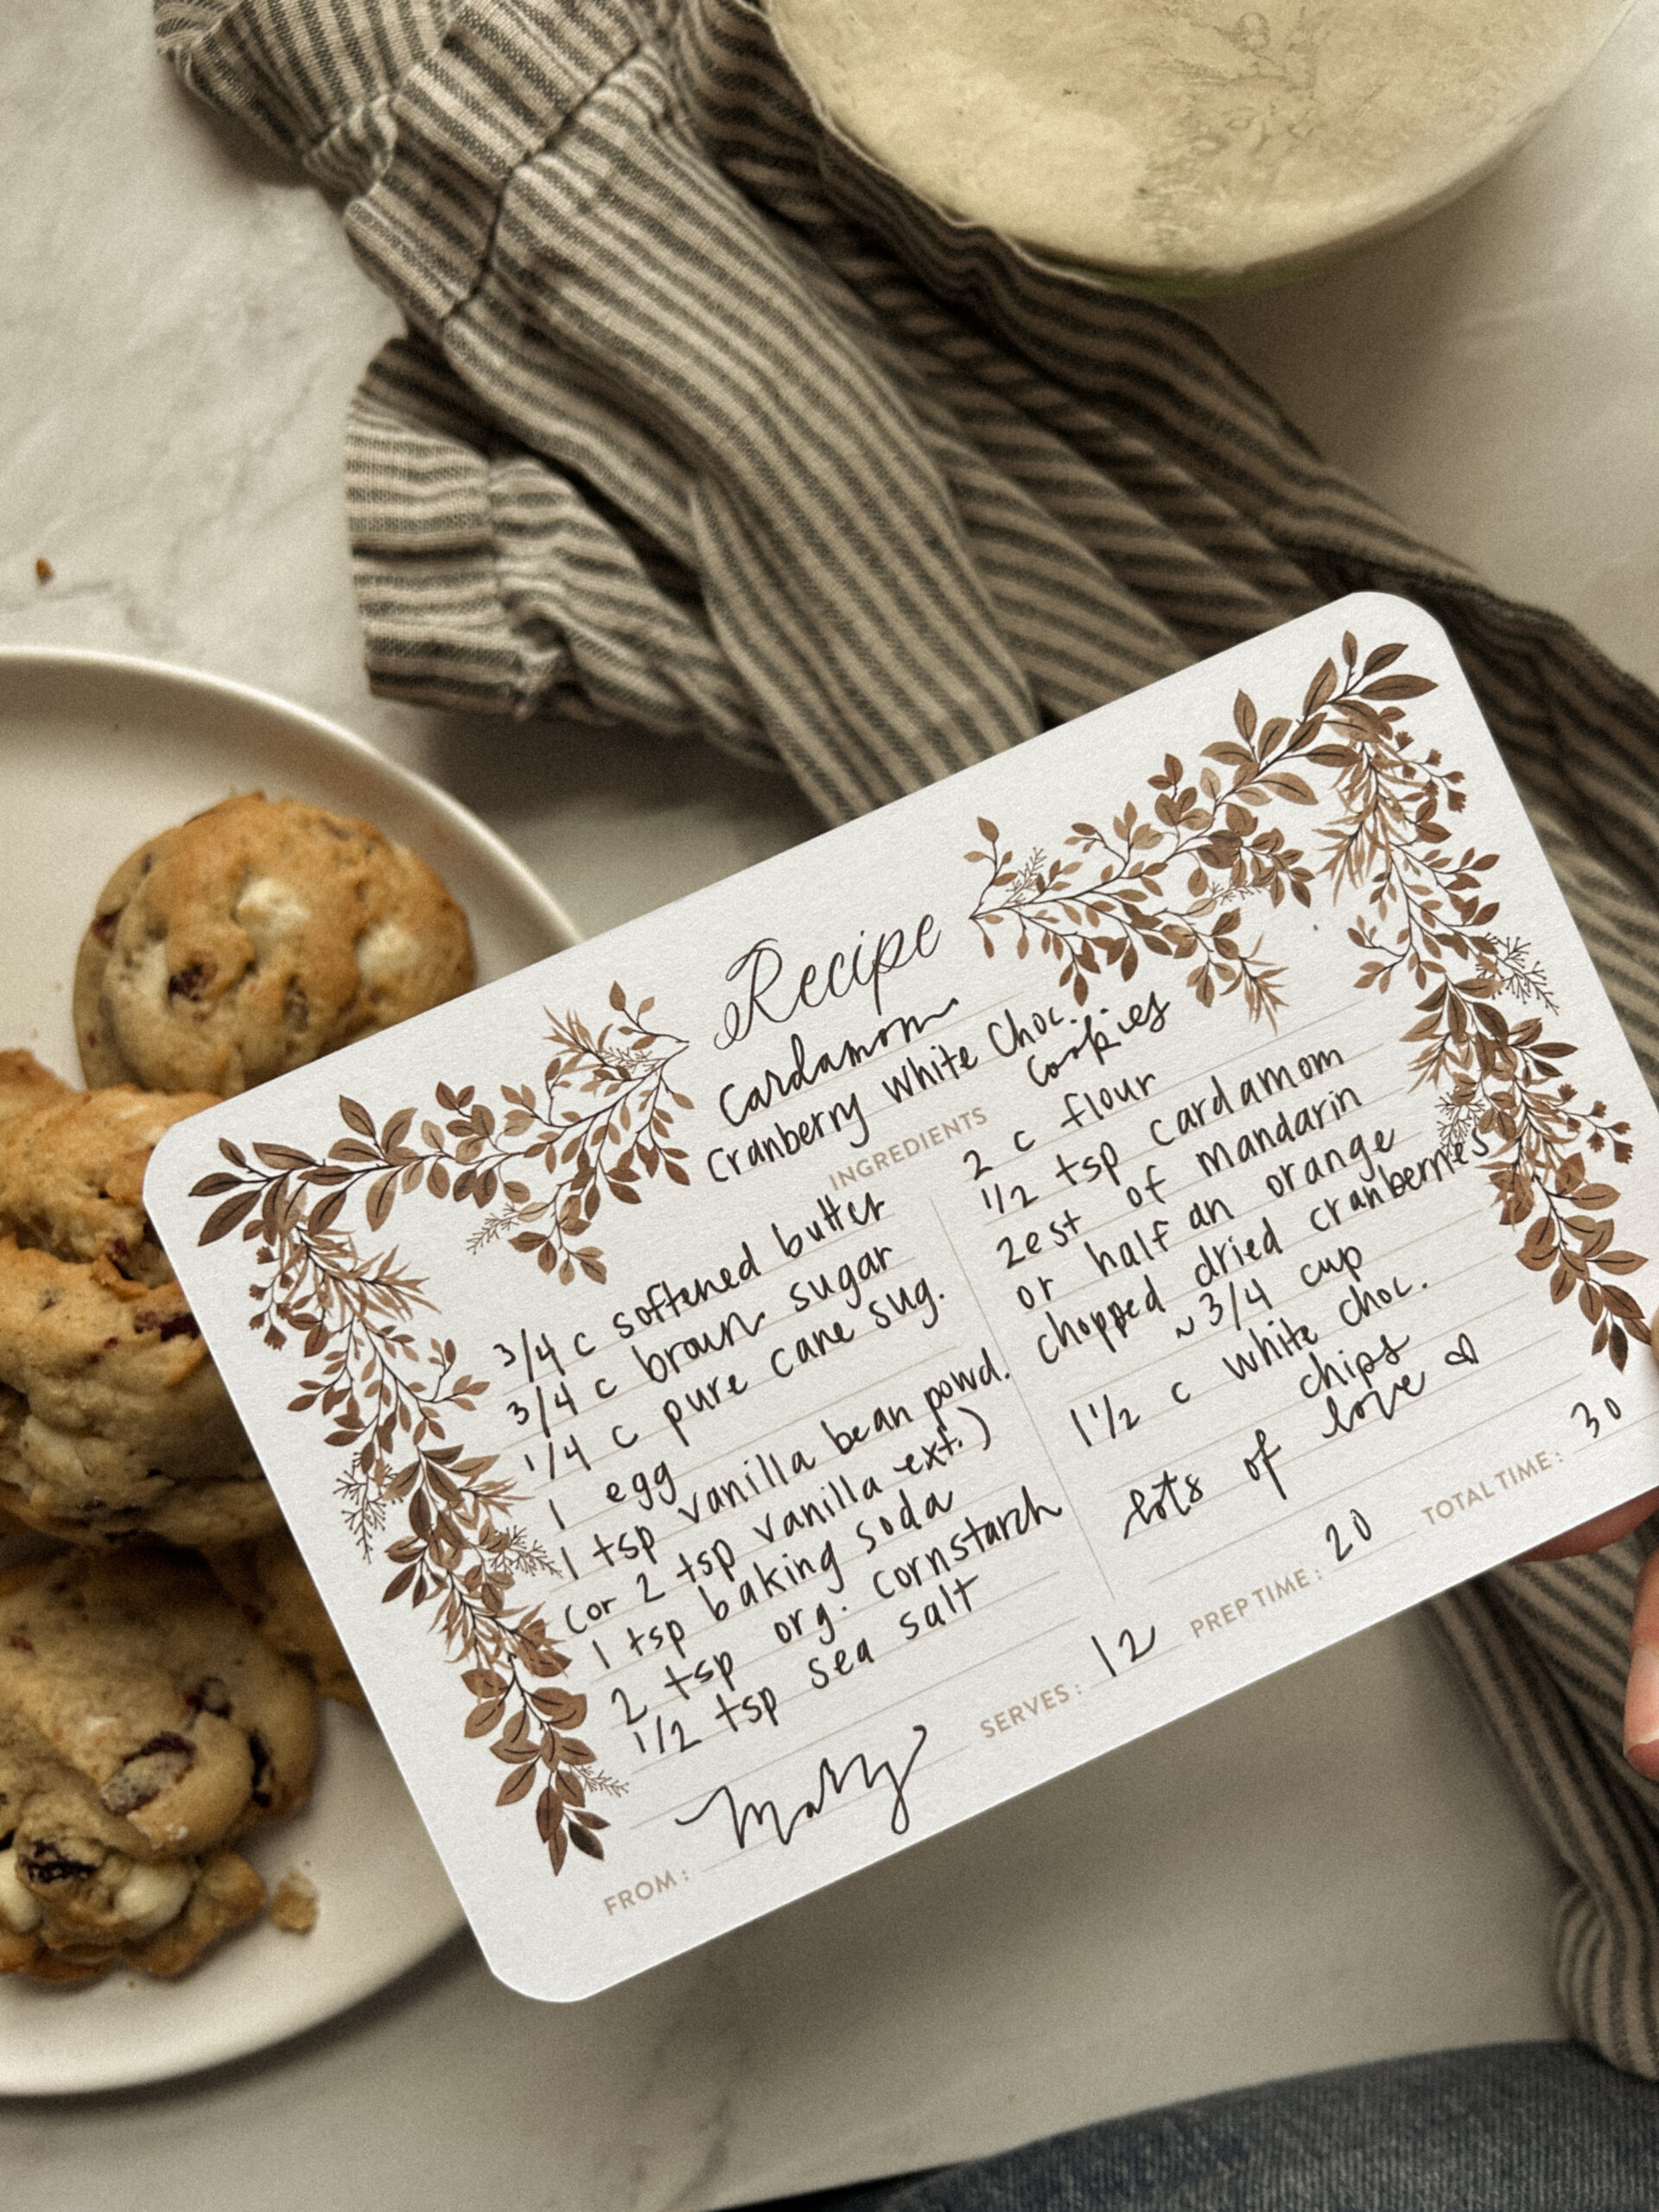 Recipe
Cardamom
Cranberry White Choc.
Cookies
INGREDIENTS
3/4 c softened butter
3/4 c brown sugar
1/4 c pure cane sug.
1 egg
1 tsp vanilla bean powd.
(or 2 tsp vanilla ext.)
1 tsp baking soda
2 tsp org. cornstarch
1/2 tsp sea salt
2 c flour
1/2 tsp cardamom
zest of mandarin
or half an orange
chopped dried cranberries
~ 3/4 cup
1 1/2 c white choc.
chips
lots of love
FROM: Mary
SERVES: 12
PREP TIME: 20
TOTAL TIME: 30